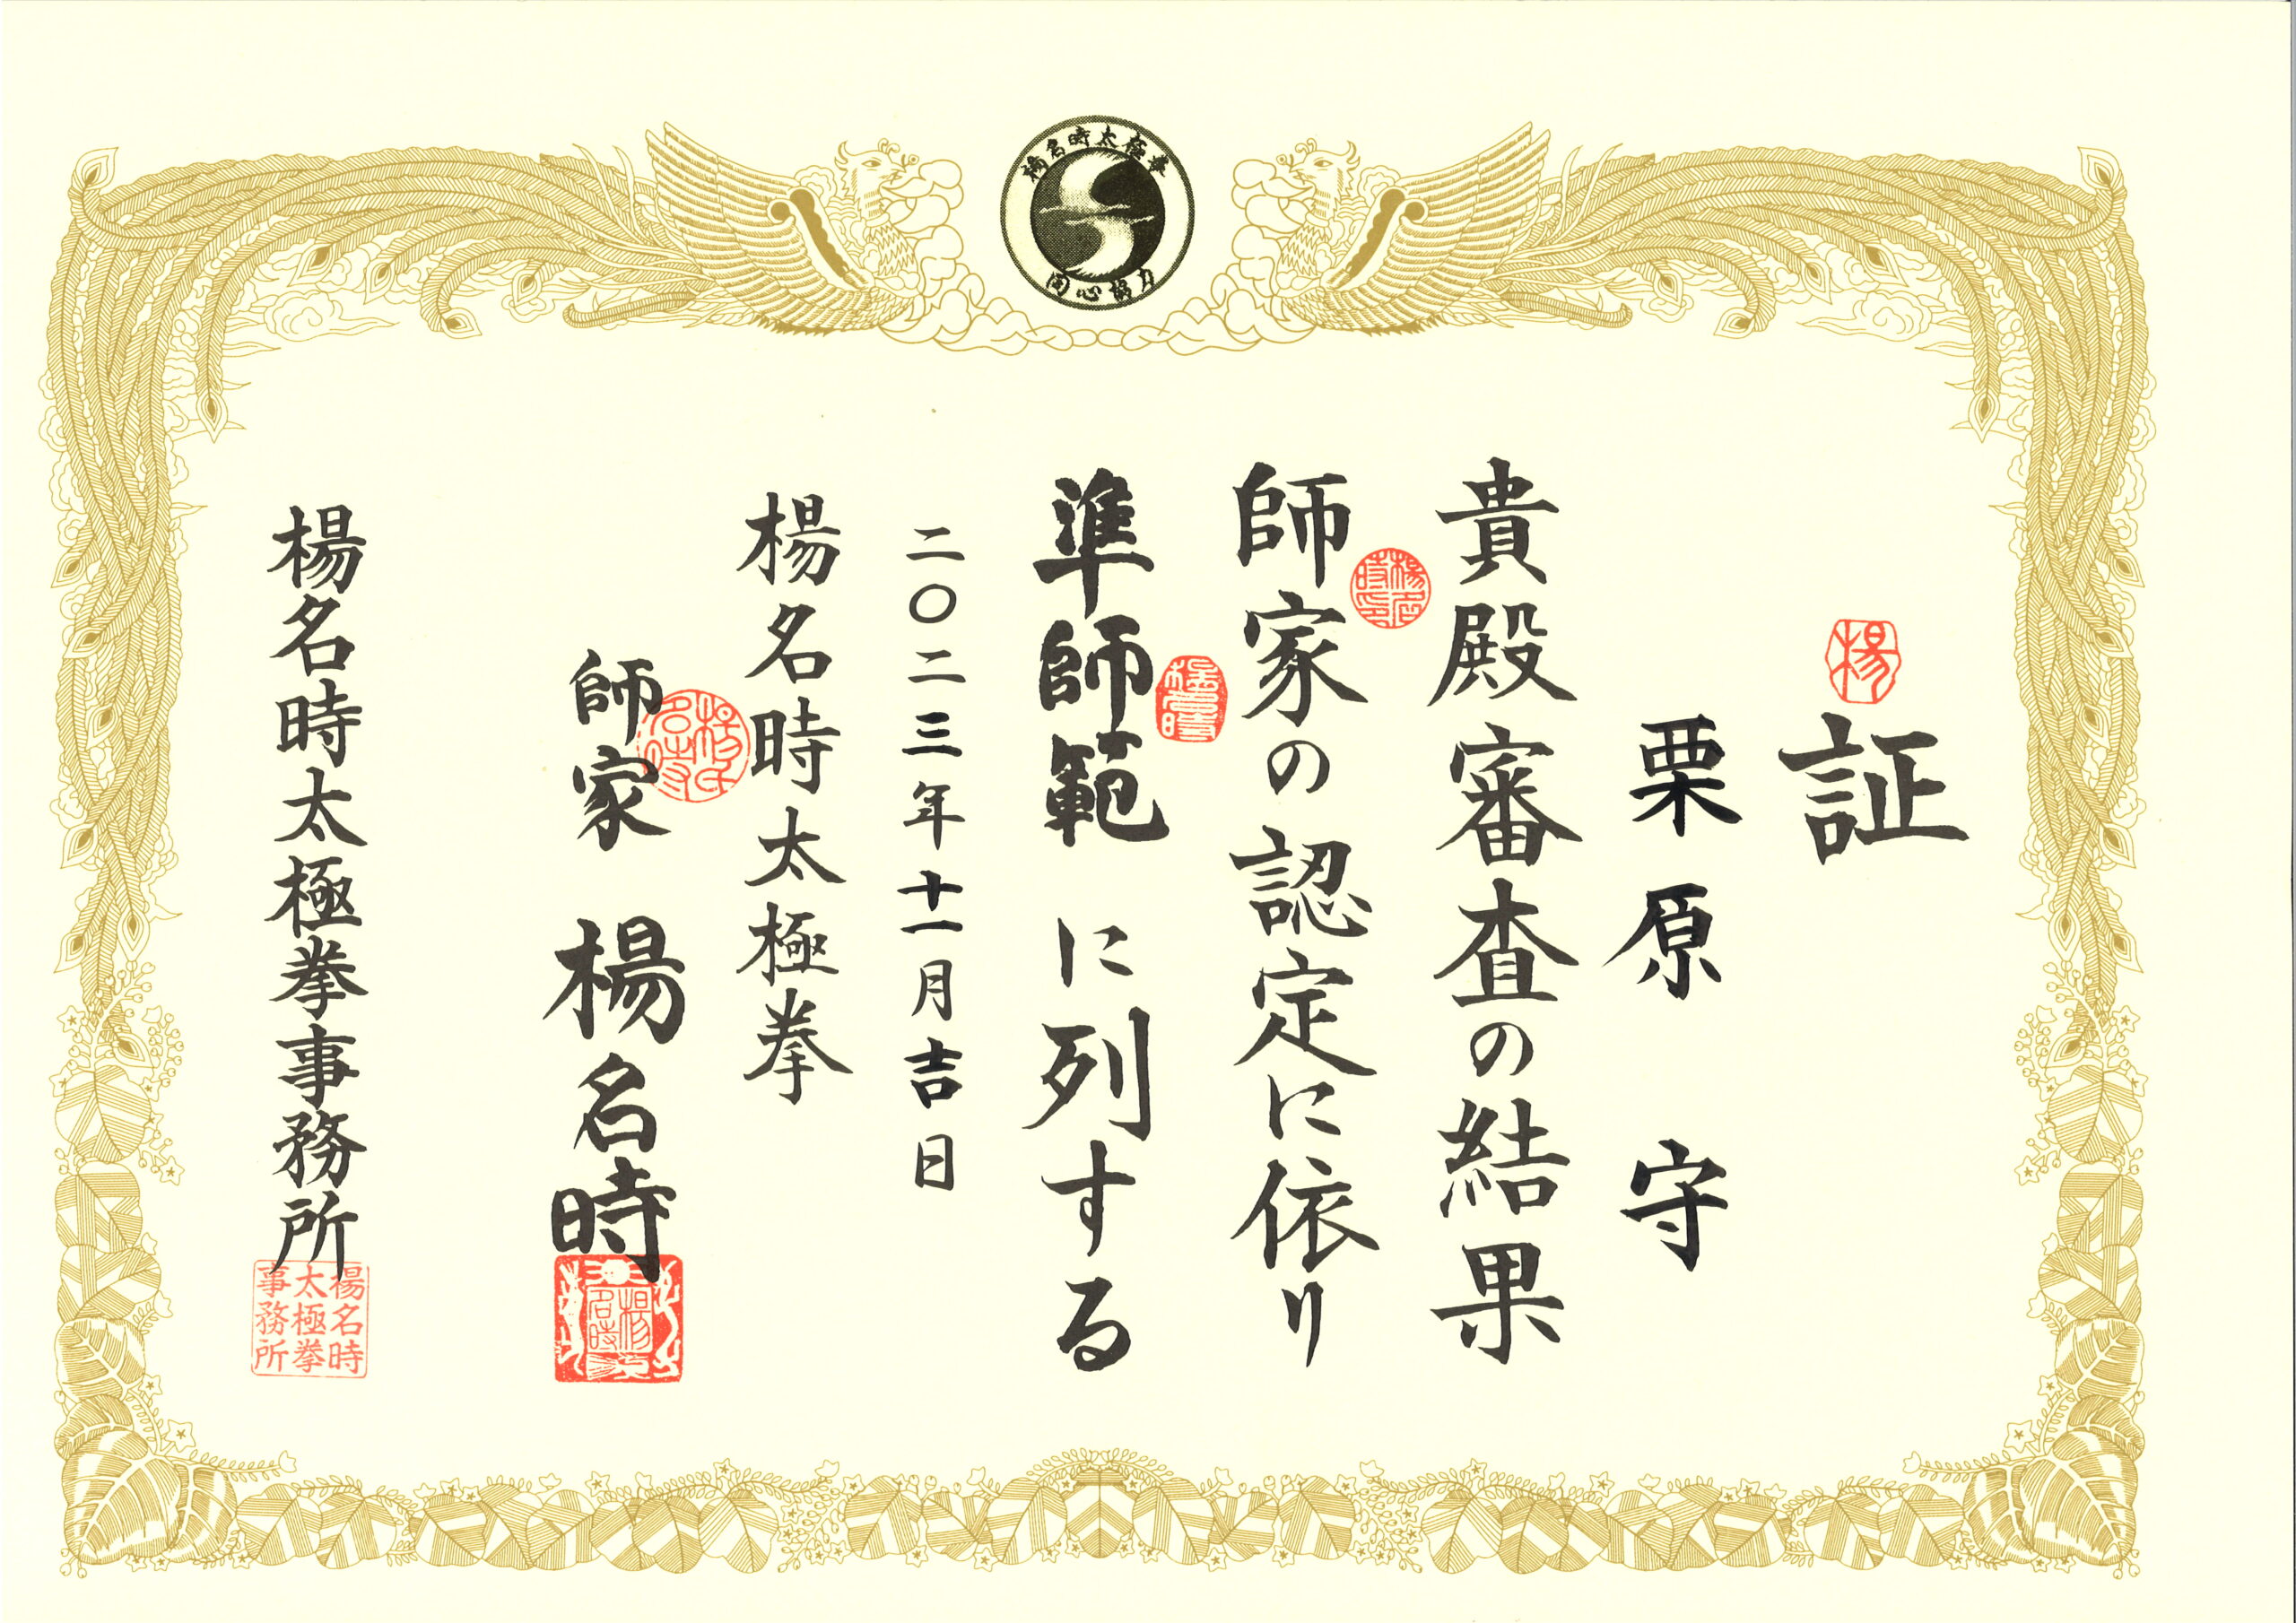 楊名時太極拳
同心協力
楊
証
栗原 守
貴殿審査の結果
師家の認定に依り
準師範に列する
二〇二三年十一月吉日
楊名時太極拳
師家 楊名時
楊名時太極拳事務所
楊名時
太極拳
事務所